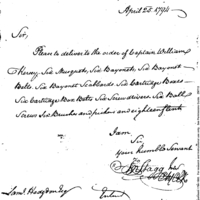 April 25. 1794
Sir,
Please to deliver to the order of Captain William
Kersey Six Musquets, Six Bayonets, Six Bayonet
Belts Six Bayonet Scabbards Six Cartridge Boxes
Six Cartridge Box Belts Six Screw drivers Six Ball
Screws Six Brushes and pickers and eighteen flints
I am,
Sir
your humble Servant
Jn Stagg Jr
Saml Hodgdon Esq